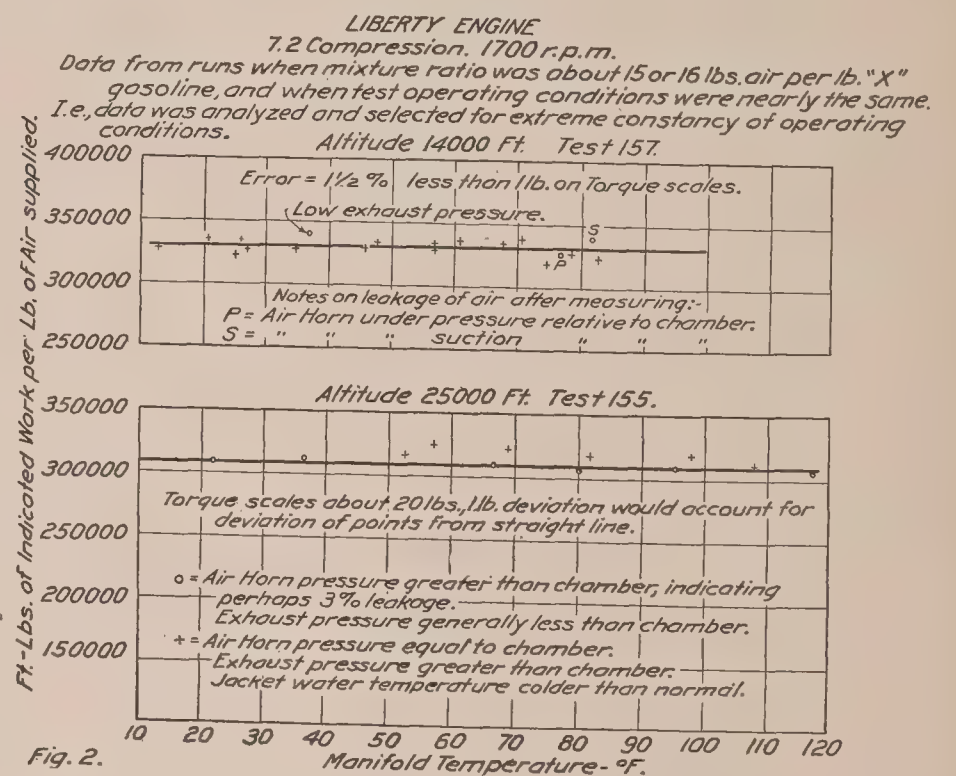 LIBERTY ENGINE
7.2 Compression. 1700 r.p.m.
Data from runs when mixture ratio was about 15 or 16 lbs. air per lb. "X"
gasoline, and when test operating conditions were nearly the same.
I.e., data was analyzed and selected for extreme constancy of operating
conditions.
Altitude 14000 Ft. Test 157.
Ft.-Lbs. of Indicated Work per Lb. of Air supplied.
400000
Error = 1 1/2 % less than 1 lb. on Torque scales.
350000
Low exhaust pressure.
S
P
300000
Notes on leakage of air after measuring:-
P = Air Horn under pressure relative to chamber.
S = " " " suction " " "
250000
Altitude 25000 Ft. Test 155.
350000
300000
Torque scales about 20 lbs., 1 lb. deviation would account for
deviation of points from straight line.
250000
o = Air Horn pressure greater than chamber, indicating
200000
perhaps 3% leakage.
Exhaust pressure generally less than chamber.
+ = Air Horn pressure equal to chamber.
150000
Exhaust pressure greater than chamber.
Jacket water temperature colder than normal.
10 20 30 40 50 60 70 80 90 100 110 120
Manifold Temperature - °F.
Fig. 2.